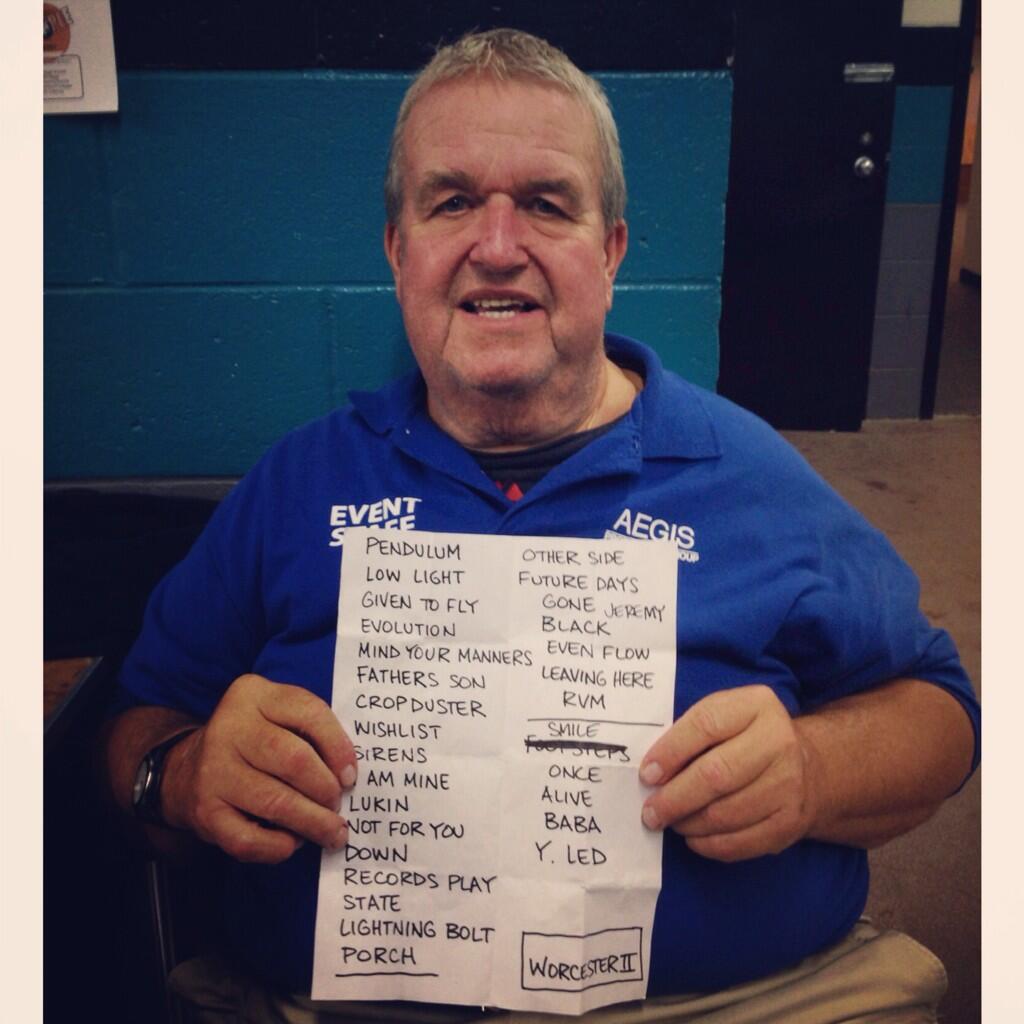 EVENT
STAFF
AEGIS
PENDULUM
LOW LIGHT
GIVEN TO FLY
EVOLUTION
MIND YOUR MANNERS
FATHERS SON
CROPDUSTER
WISHLIST
SIRENS
I AM MINE
LUKIN
NOT FOR YOU
DOWN
RECORDS PLAY
STATE
LIGHTNING BOLT
PORCH
OTHER SIDE
FUTURE DAYS
GONE JEREMY
BLACK
EVEN FLOW
LEAVING HERE
RVM
SMILE
FOOTSTEPS
ONCE
ALIVE
BABA
Y. LED
WORCESTER II